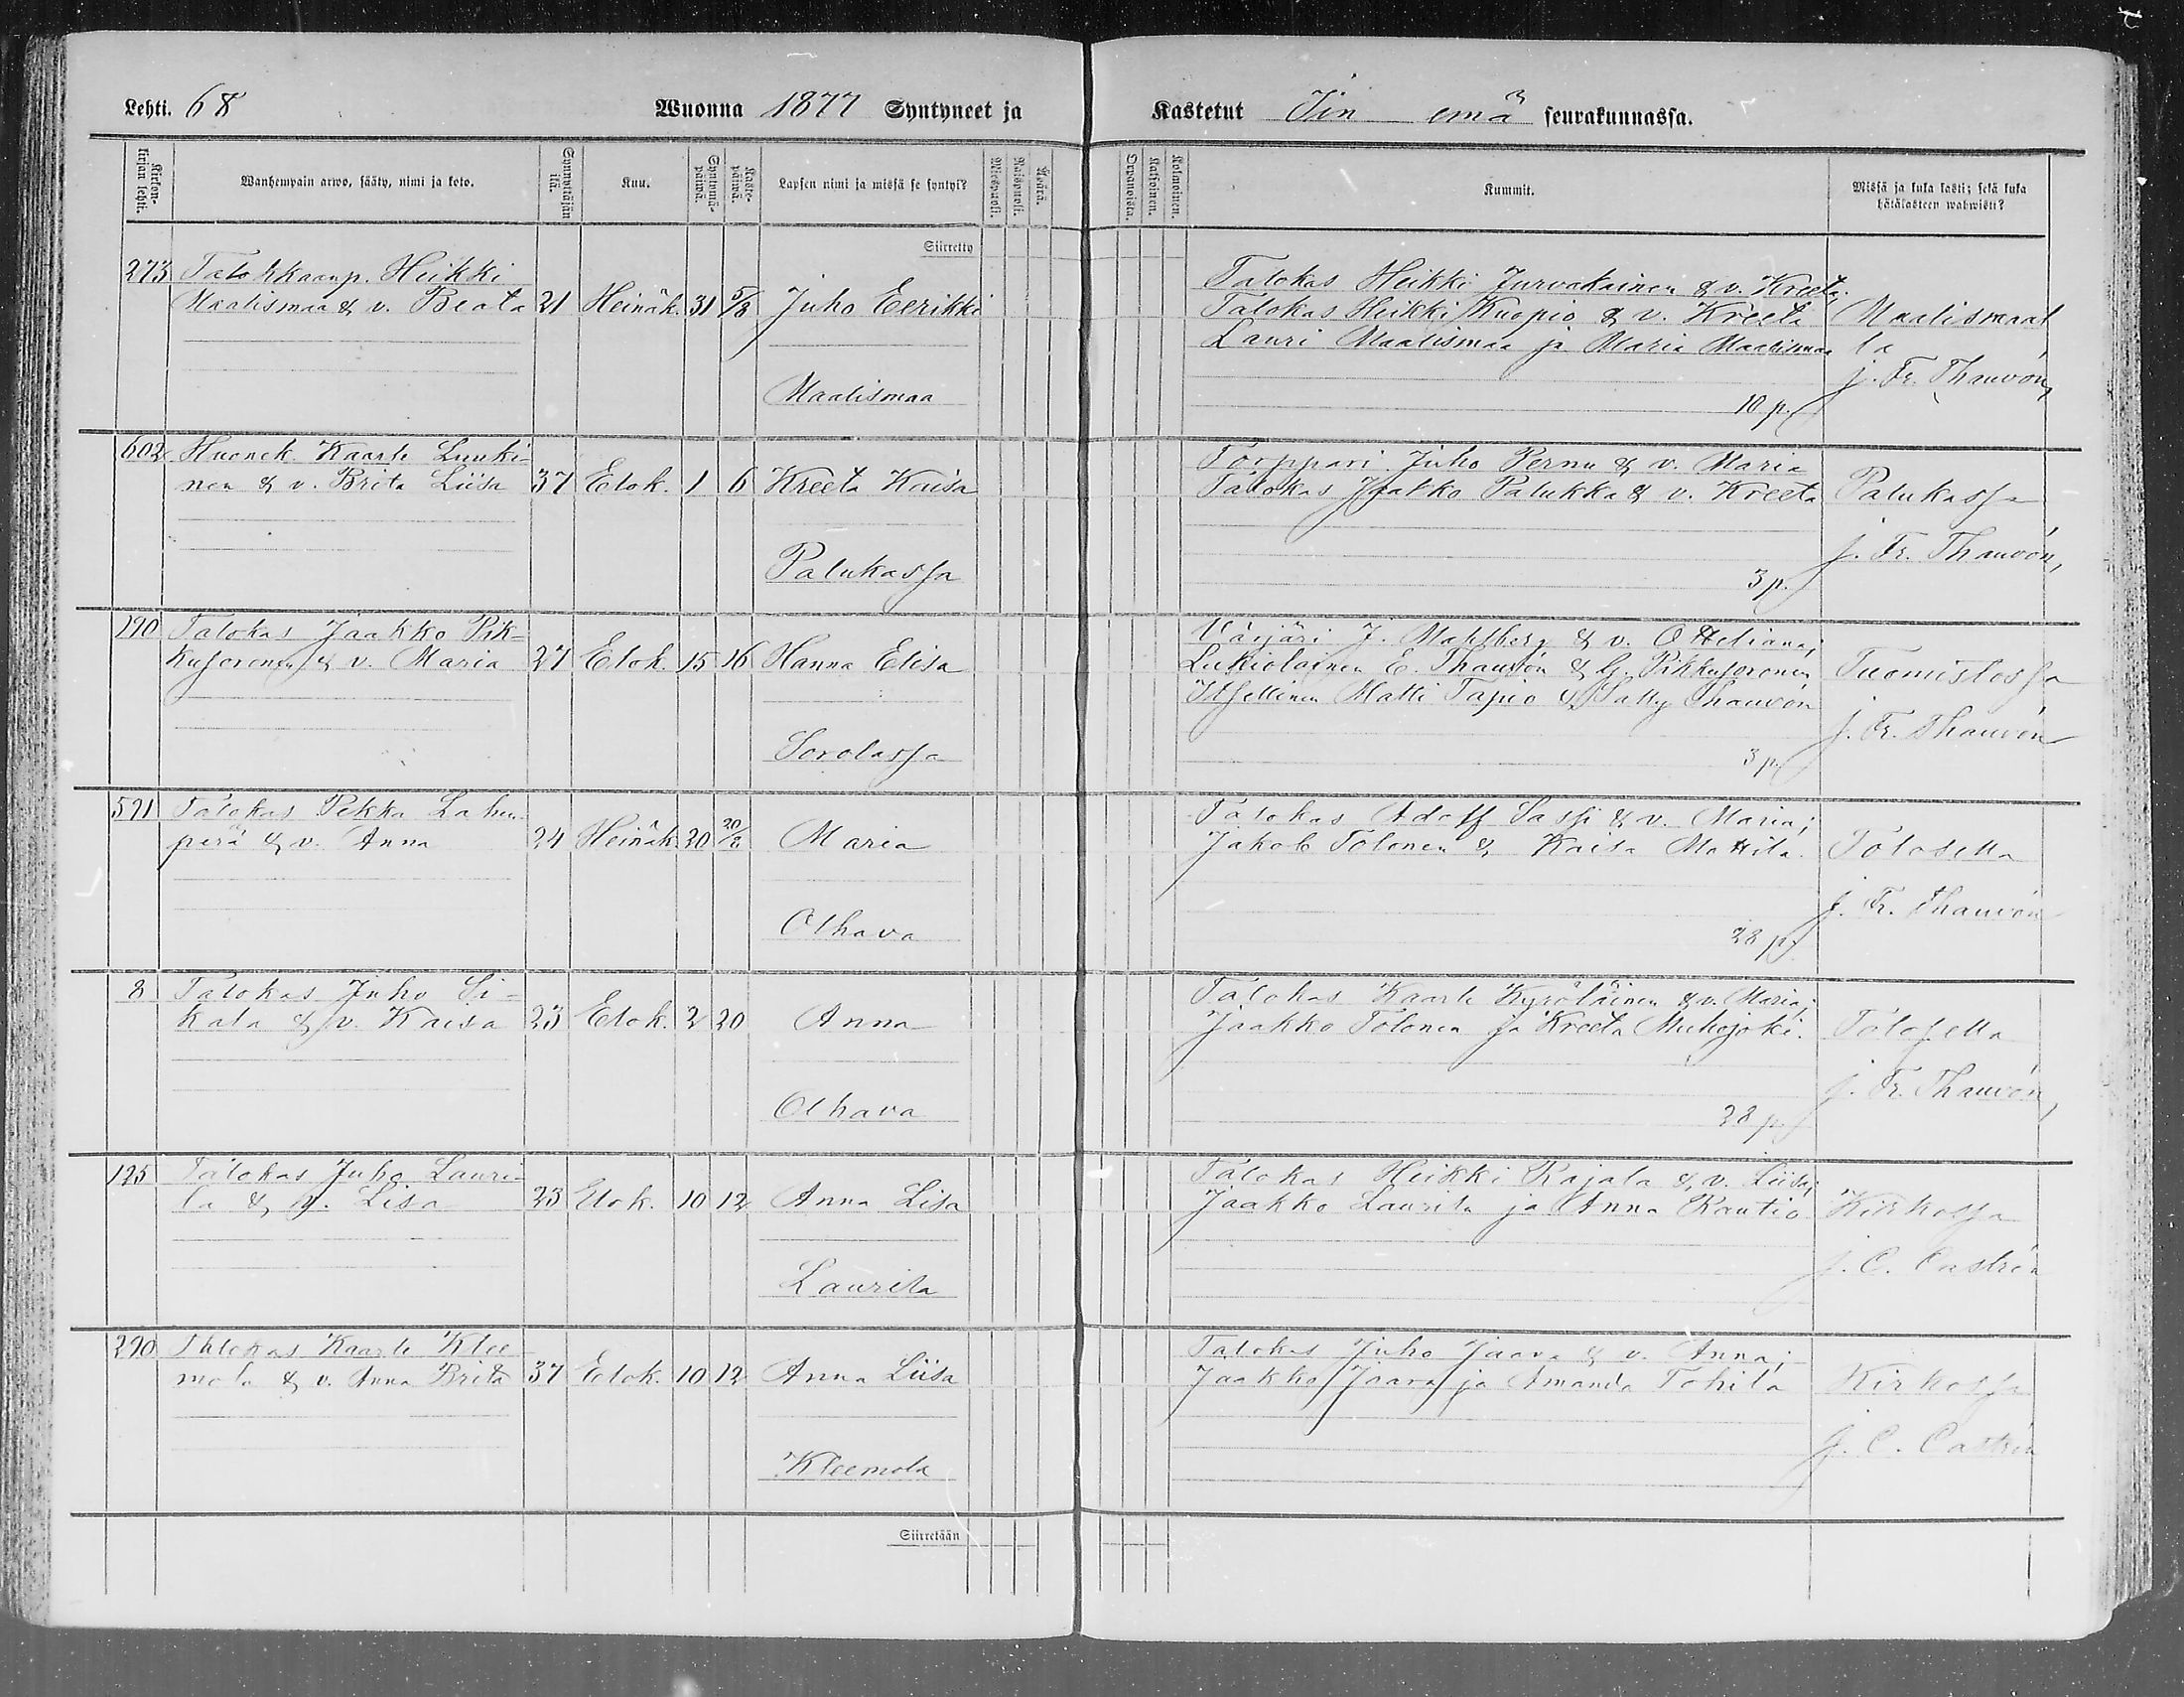 Lehti. 68 Wuonna 1877 Syntyneet ja Kastetut Iin emä seurakunnassa.
Kirkonkirjan lehti. Wanhempain arwo, sääty, nimi ja koto. Synnyttäjän ikä. Kuu. Syntymäpäiwä. Kastepäiwä. Lapsen nimi ja missä se syntyi? Miespuoli. Waispuoli. Äpärä. Kolmoinen. Kummit. Missä ja kuka kasti; sekä kuka hätäkasteen wahwisti?
Siirretty
273 Heikki
Maalismaa & v. Beata 21 Heinäk. 31 5/8 Juho Eerikki
Maalismaa
Talokas Heikki Jurvakainen & v. Kreeta.
Talokas Heikki Kuopio & v. Kreeta
Lauri Maalismaa ja Maria Maalismaa
10 p.
Maalismaal
la
j. Fr. Thauvón,
602 Huonek. Kaarle Luuki-
nen & v. Brita Liisa 37 Elok. 1 6 Kreeta Kaisa
Palukassa
Torppari Juho Pernu & v. Maria
Talokas Jaakko Palukka & v. Kreeta
3 p.
Palukassa
j. Fr. Thauvón,
190 Talokas Jaakko Pik-
kusoronen & v. Maria 27 Elok. 15 16 Hanna Elisa
Sorolassa
Värjäri J. Mahlberg & v. Otteliana;
Lukiolainen E. Thauvón & G. Pikkusoronen
Itsellinen Matti Tapio & Sally Thauvón
3 p.
Tuomistossa
j. Fr. Thauvón
591 Talokas Pekka Lahen-
perä & v. Anna 24 Heinäk. 20 20/8 Maria
Olhava
Talokas Adolf Sassi & v. Maria;
Jakob Tolonen & Kaisa Mattila.
28 p.
Tolosella
j. Fr. Thauvón
8 Talokas Juho Si-
kala & v. Kaisa 23 Elok. 2 20 Anna
Olhava
Talokas Kaarle Kyröläinen & v. Maria;
Jaakko Tolonen ja Kreeta Muhojoki.
28 p.
Tolosella
j. Fr. Thauvón,
125 Talokas Juho Lauri-
la & v. Lisa 23 Elok. 10 12 Anna Lisa
Laurila
Talokas Heikki Rajala & v. Liisa;
Jaakko Laurila ja Anna Rautio
Kirkossa
j. C. Castrén
290 Talokas Kaarle Klee-
mola & v. Anna Brita 37 Elok. 10 12 Anna Liisa
Kleemola
Talokas Juho Jaara & v. Anna;
Jaakko Jaara ja Amanda Tohila
Kirkossa
j. C. Castrén
Siirretään